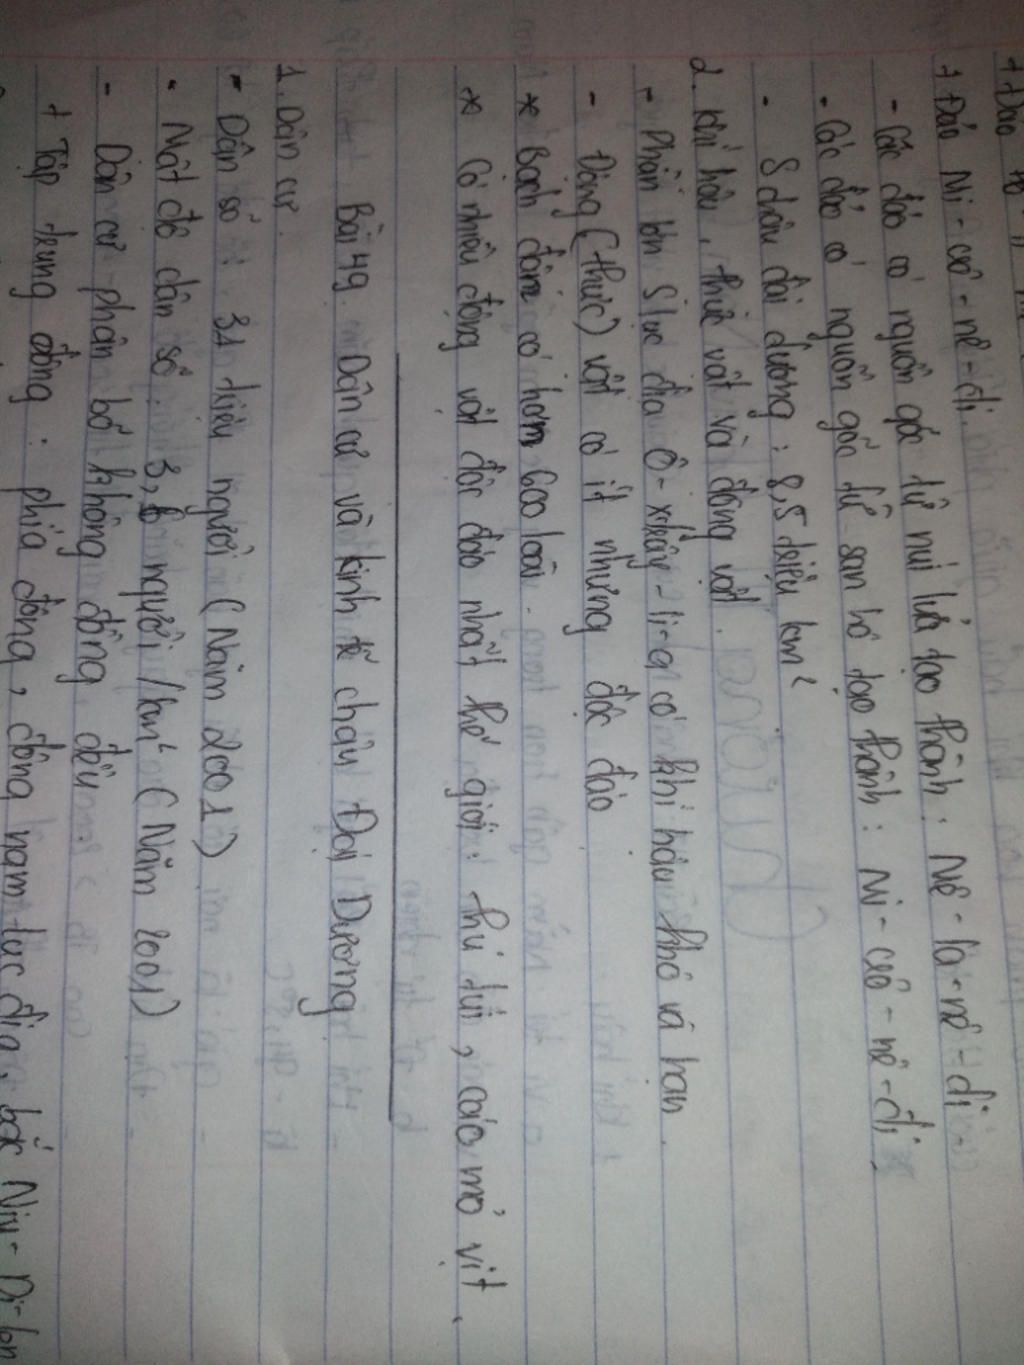 + Đảo
+ Đảo Mi - crô - nê - di.
- Các đảo có nguồn gốc từ núi lửa tạo thành : Mê - la - nê - di
- Các đảo có nguồn gốc từ san hô tạo thành : Mi - crô - nê - di
- S châu đại dương : 8,5 triệu km²
2. Khí hậu, thực vật và động vật.
- Phần lớn S lục địa Ô - xtrây - li - a có khí hậu khô và hạn.
- Động (thực) vật có ít nhưng độc đáo
* Bạch đàn có hơn 600 loài.
* Có nhiều động vật độc đáo nhất thế giới : thú túi, cáo mỏ vịt.
Bài 49. Dân cư và kinh tế châu Đại Dương
1. Dân cư.
- Dân số : 31 triệu người (Năm 2001)
- Mật độ dân số : 3,6 người/km² (Năm 2001)
- Dân cư phân bố không đồng đều
+ Tập trung đông : phía đông, đông nam lục địa, bắc Niu - Di - lon